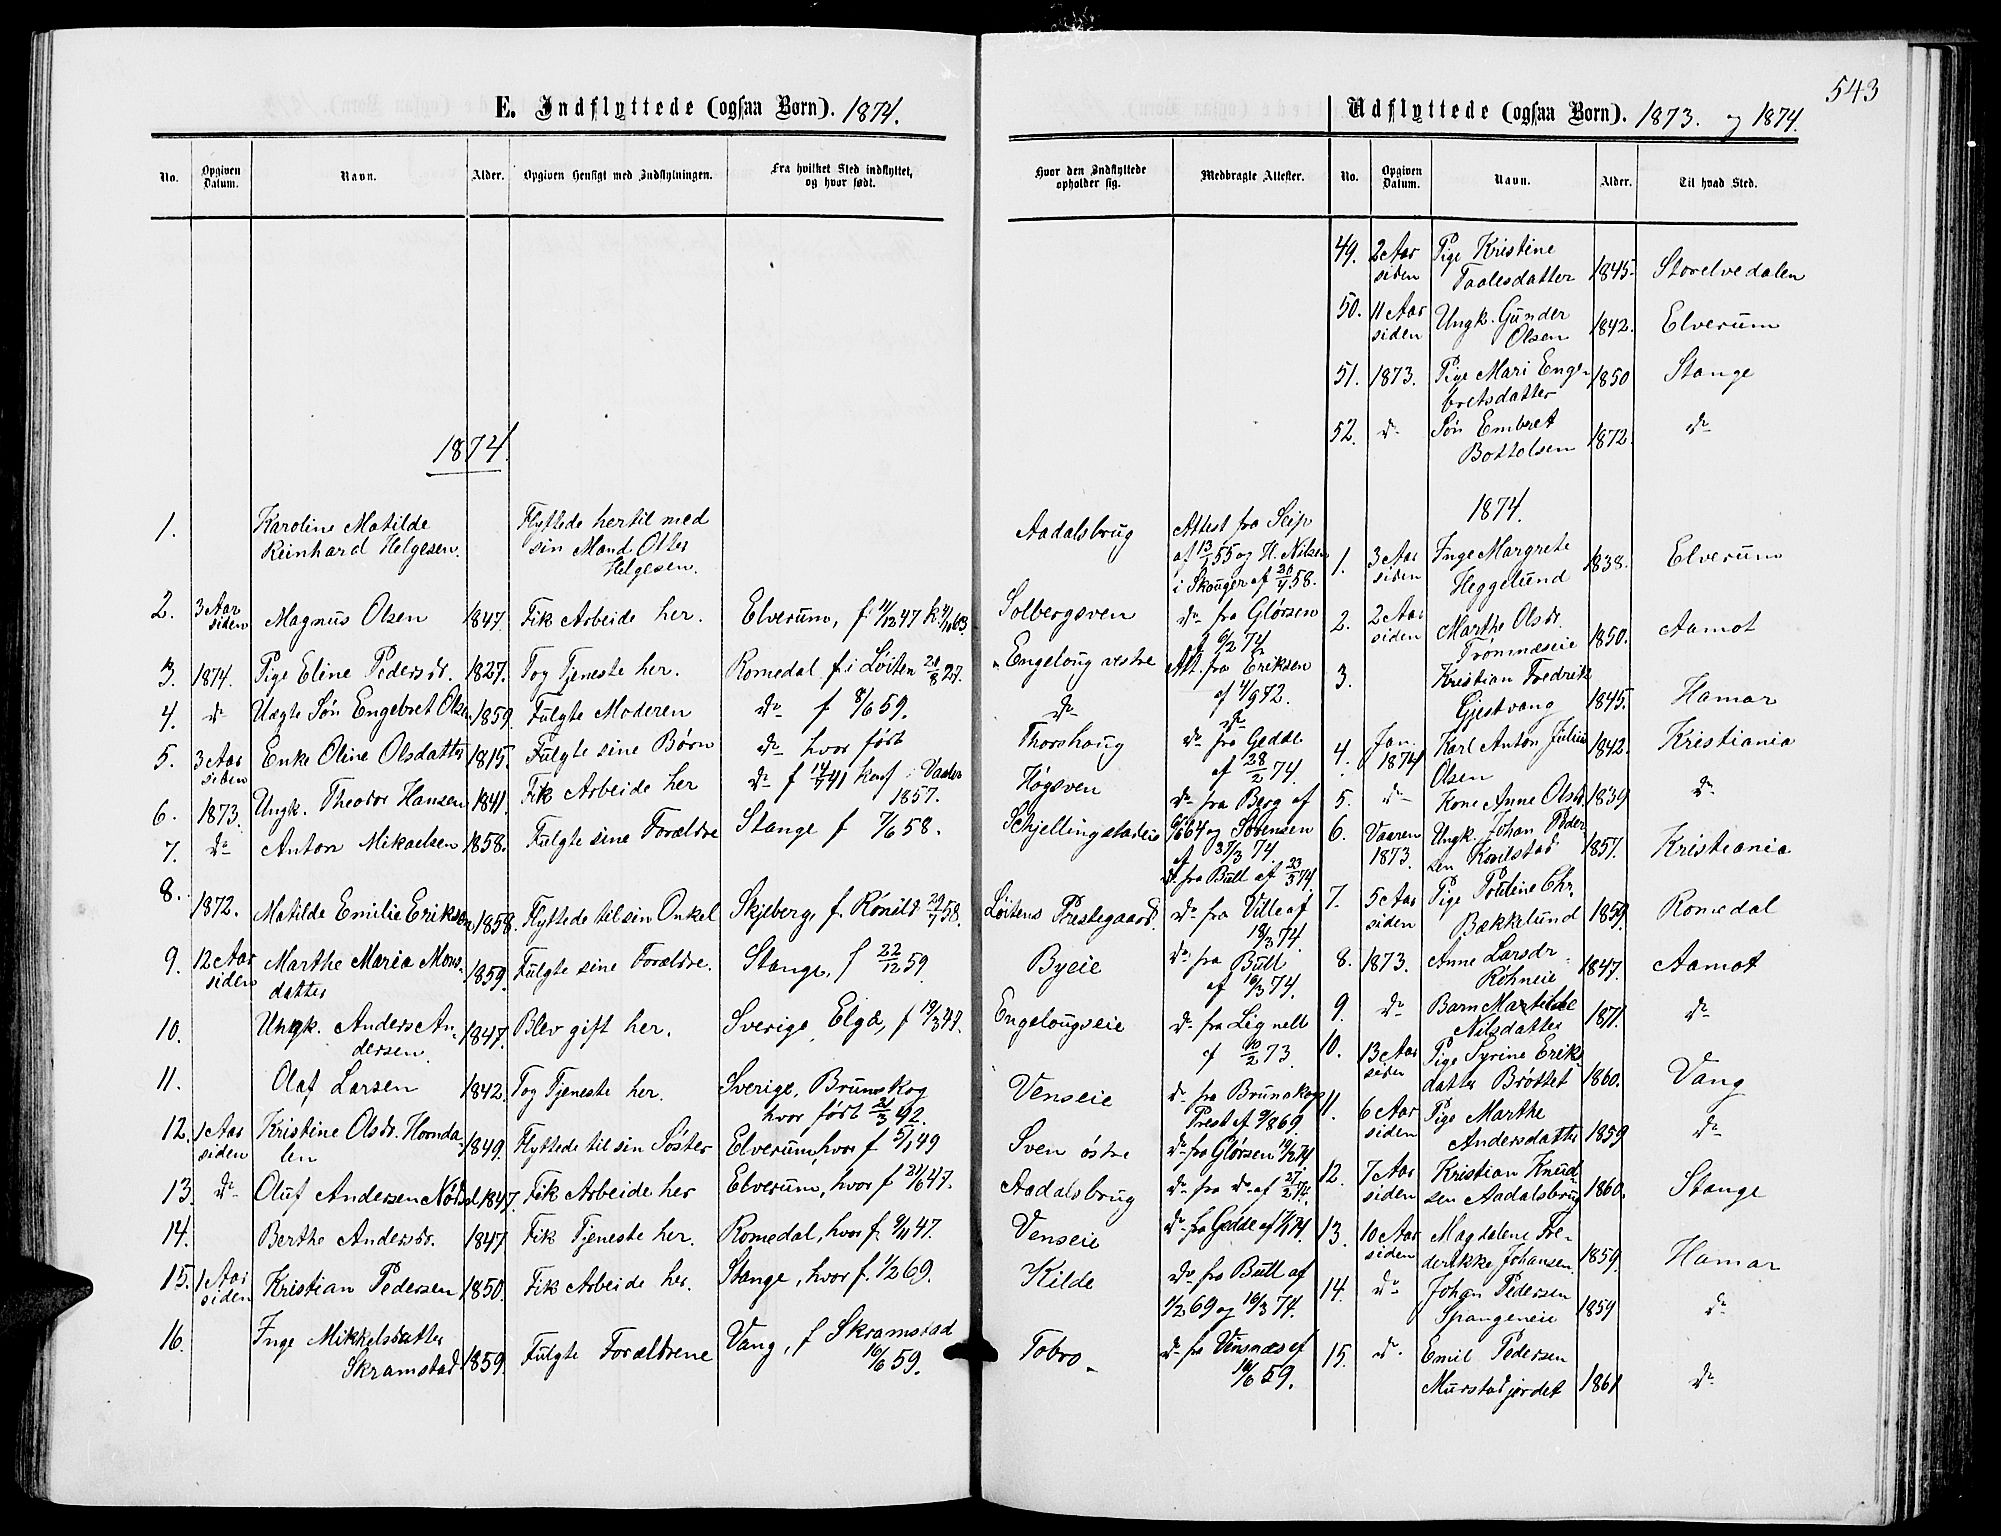 543
E. Indflyttede (ogsaa Børn). 1874.
No. Opgiven Datum. Navn. Alder. Opgiven Hensigt med Indflytningen. Fra hvilket Sted indflyttet, og hvor født.
1874.
1. Karoline Matilde Flyttede hertil med
Reinhard Helgesen. sin Mand Otter
Helgesen.
2. 3 Aar siden Magnus Olsen 1847. Fik Arbeide her. Elverum, f. 11/12 47
3. 1874. Pige Eline Pedersdr. 1827. Tog Tjeneste her. Romedal f. i Løiten
4. do Uægte Søn Engebret Olsen 1859. Fulgte Moderen do f 8/6 59.
5. 3 Aar siden Enke Oline Olsdatter 1815. Fulgte sine Børn do hvor født
6. 1873. Ungk. Theodor Hansen 1841. Fik Arbeide her do f 14/7 41 konf. i Vaaler
1857.
7. do Anton Mikaelsen 1858. Fulgte sine Forældre Stange f 7/6 58.
8. 1872. Matilde Emilie Eriksen 1858. Flyttede til sin Onkel Skjeberg,
9. 12 Aar siden Marthe Maria Mons- 1859. Fulgte sine Forældre. Stange, f 22/12 59
datter
10. Ungk. Anders An- 1847. Blev gift her. Sverige, Elgå, f 19/3 47.
dersen.
11. Olaf Larsen 1842. Tog Tjeneste her. Sverige, Brunskog
hvor født 21/3 42.
12. 1 Aar siden Kristine Olsdr. Hornda- 1849. Flyttede til sin Søster Elverum, hvor f 5/1 49
len
13. do Oluf Andersen 1847. Fik Arbeide her Elverum, hvor f 24/6 47.
14. Berthe Andersdr. 1847 Fik Tjeneste her. Romedal, hvor f. 9/11 47.
15. 1 Aar siden Kristian Pedersen 1850. Fik Arbeide her. Stange, hvor f. 1/2 69.
16. Inge Mikkelsdatter Vang, f Skramstad
Skramstad 1859. Fulgte Forældrene 16/6 59.
Hvor den Indflyttede opholder sig. Medbragte Attester.
Aadalsbrug Attest fra Seip
af 13/1 55 og H. Nilsen
i Skouger af 20/4 58.
Solbergsven do fra Glørsen
af 6/2 74
Engeloug vestre Att. fra Eriksen
af 4/9 72.
do do
Thorshoug do fra Gedde
af 28/2 74.
Høgsven do fra Berg af
Schjellingstadeie og Sørensen
af 27/3 74.
do fra Bull af 23/3 74.
Løitens Prestegaard. do fra Ville af
18/3 74.
Byeie do fra Bull
af 16/3 74.
Engelougseie do fra Lignell
af 10/2 73.
Venseie do fra Brunskogs
Prest af 9/8 69.
Sven østre do fra Glørsen 19/2 74
Aadalsbrug do fra do af 27/2 74.
Venseie do fra Gedde af
Kilde do fra Bull af
1/2 69 og 16/3 74.
Tobro do fra Vensnæs af
16/6 59.
Udflyttede (ogsaa Børn). 1873. og 1874.
No. Opgiven Datum. Navn. Alder. Til hvad Sted.
49. 2 Aar siden Pige Kristine
Taalesdatter 1845. Storelvedalen
50. 11 Aar siden Ungk. Gunder
Olsen 1842. Elverum
51. 1873. Pige Mari Enge- 1850 Stange
bretsdatter
52. do Søn Embret 1872. do
Bottolsen
1874.
1. 3 Aar siden Inge Margrete 1838. Elverum
Heggelund
2. 2 Aar siden Marthe Olsdr. 1850. Aamot
Trønnæseie
3. Kristian Fredrik
Gjestvang 1845. Hamar
4. Jan. 1874 Karl Anton Julius 1842. Kristiania
Olsen
5. do Kone Anne Olsdr. 1839. do
6. Vaaren 1873. Ungk. Johan Peder- 1857. Kristiania
sen
7. 5 Aar siden Pige Pouline Chr. 1859. Romedal
Bækkelund
8. 1873. Anne Larsdr 1847. Aamot
Røhneie
9. do Barn Mathilde 1871. do
Nilsdatter
10. 13 Aar siden Pige Syrine Eriks- 1860. Vang
datter Brøttet
11. 6 Aar siden Pige Marthe
Andersdatter 1859 do
12. 7 Aar siden Kristian Knud- 1860. Stange
sen Aadalsbrug
13. 10 Aar siden Magdalene Fre- 1859. Hamar
derikke Johansen
14. do Johan Pedersen
Spangeneie 1859 do
15. do Emil Pedersen
Murstadjordet 1861 do